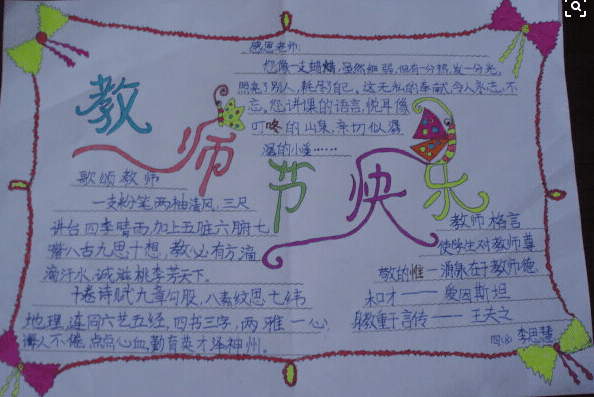 教师节快乐
感恩老师:
您像一支蜡烛,虽然细弱,但有一分热,发一分光,
照亮了别人,耗尽了自己。这无私的奉献,令人永志不
忘。您讲课的语言,悦耳像
叮咚的山泉,亲切似潺
潺的小溪……
歌颂教师
一支粉笔两袖清风,三尺
讲台四季晴雨,加上五脏六腑七
嘴八古九思十想,教必有方滴
滴汗水,诚滋桃李芳天下。
十卷诗赋九章勾股,八索纹思七纬
地理,连同六艺五经,四书三字,两雅一心,
诲人不倦,点点心血,勤育英才泽神州。
教师格言
使学生对教师尊
敬的惟一源泉在于教师德
和才——爱因斯坦
身教重于言传——王夫之
李思慧